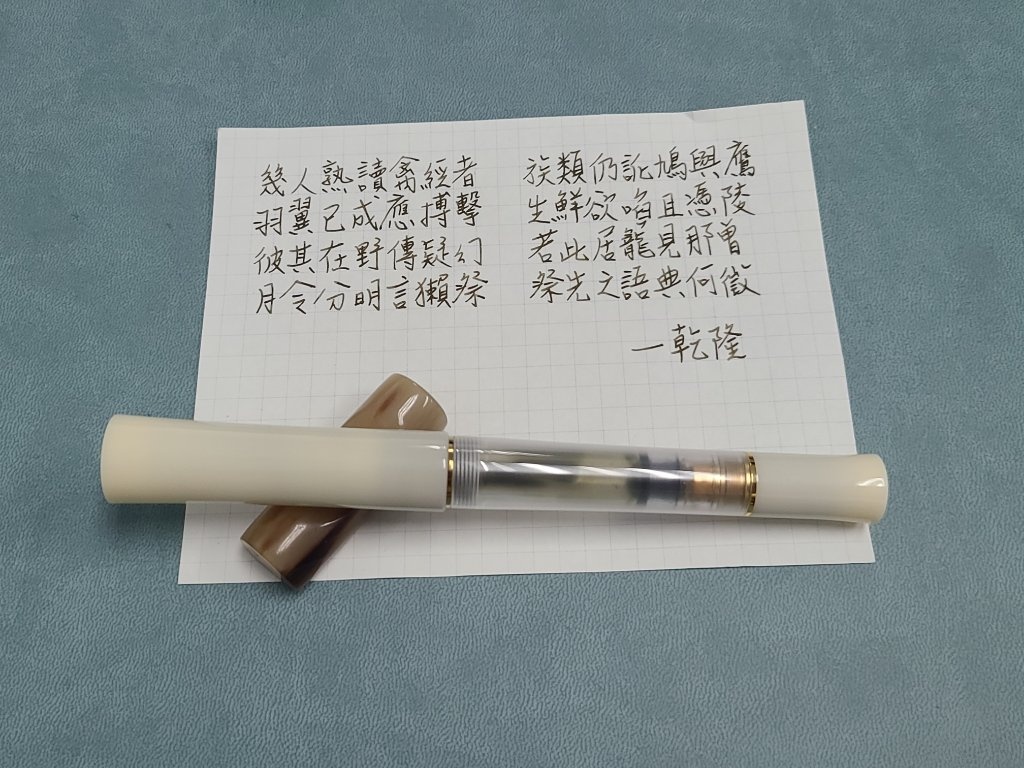 幾人熟讀禽經者 族類仍訛鳩與鷹
羽翼已成應搏擊 生鮮欲啗且憑陵
彼其在野傳疑幻 若此居籠見那曾
月令分明言獺祭 祭先之語典何徵
一乾隆